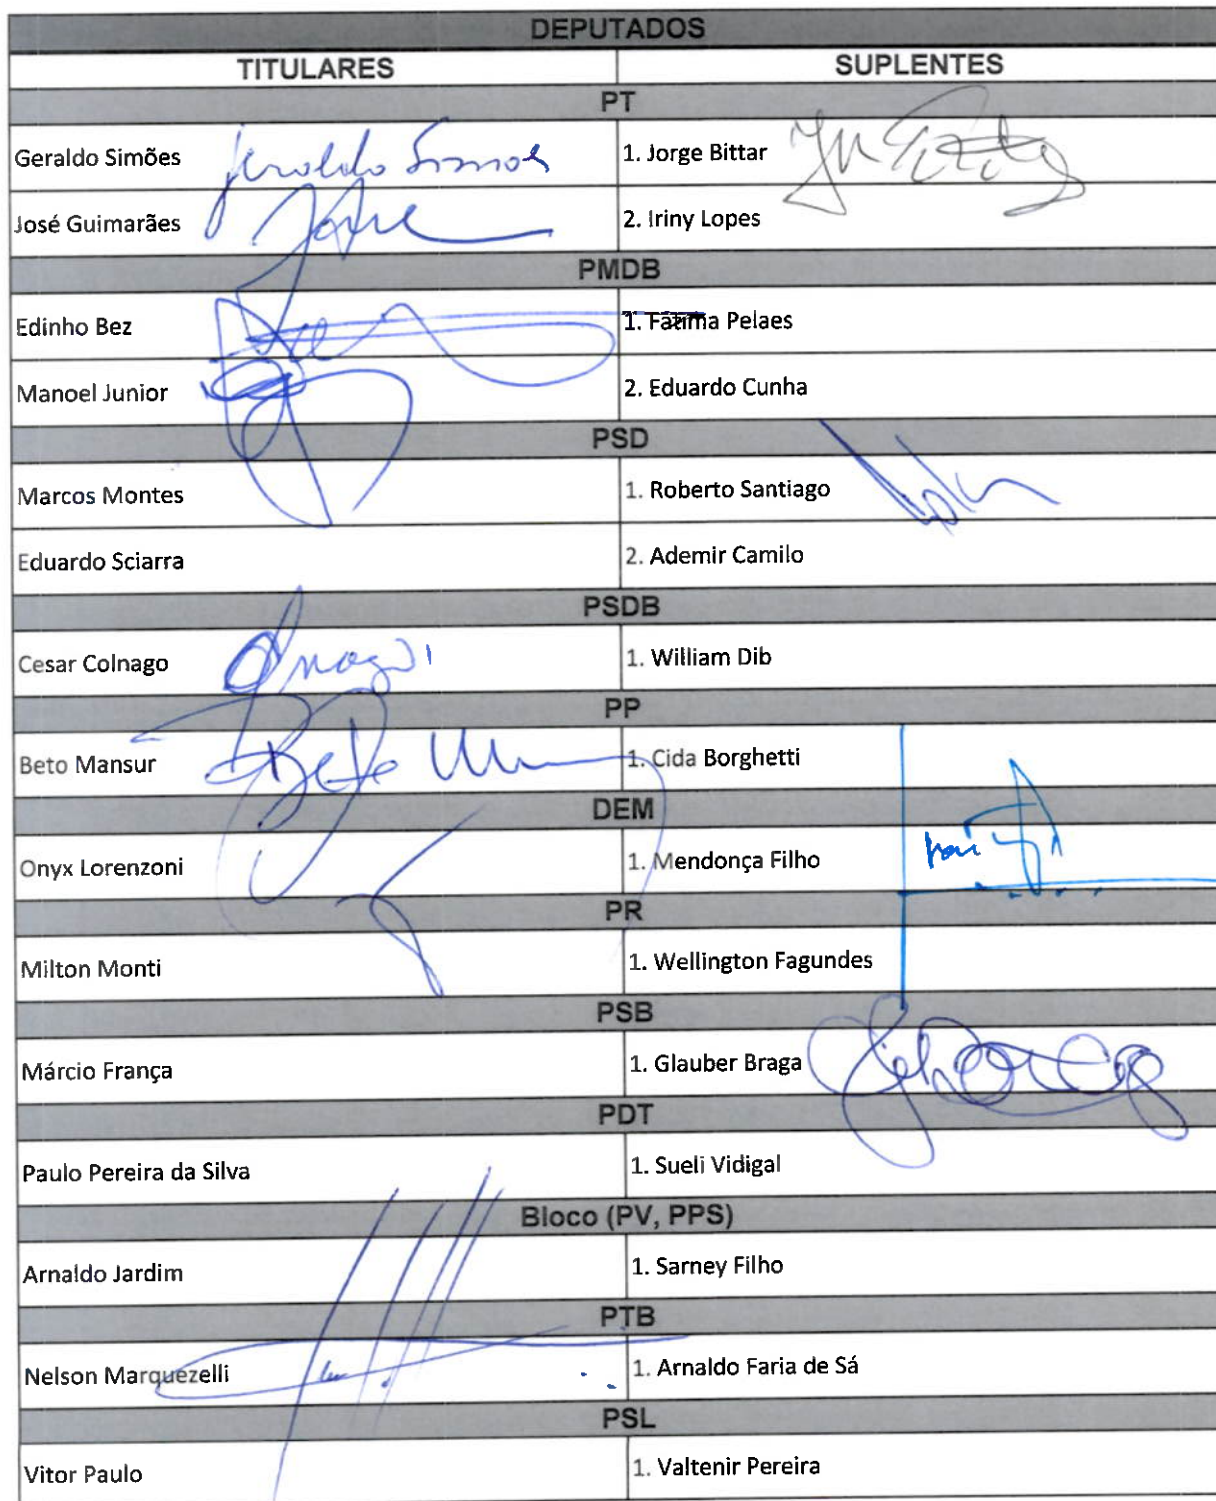 DEPUTADOS
TITULARES SUPLENTES
PT
Geraldo Simões Geraldo Simões 1. Jorge Bittar
José Guimarães 2. Iriny Lopes
PMDB
Edinho Bez 1. Fátima Pelaes
Manoel Junior 2. Eduardo Cunha
PSD
Marcos Montes 1. Roberto Santiago
Eduardo Sciarra 2. Ademir Camilo
PSDB
Cesar Colnago 1. William Dib
PP
Beto Mansur Beto 1. Cida Borghetti
DEM
Onyx Lorenzoni 1. Mendonça Filho
PR
Milton Monti 1. Wellington Fagundes
PSB
Márcio França 1. Glauber Braga
PDT
Paulo Pereira da Silva 1. Sueli Vidigal
Bloco (PV, PPS)
Arnaldo Jardim 1. Sarney Filho
PTB
Nelson Marquezelli 1. Arnaldo Faria de Sá
PSL
Vitor Paulo 1. Valtenir Pereira